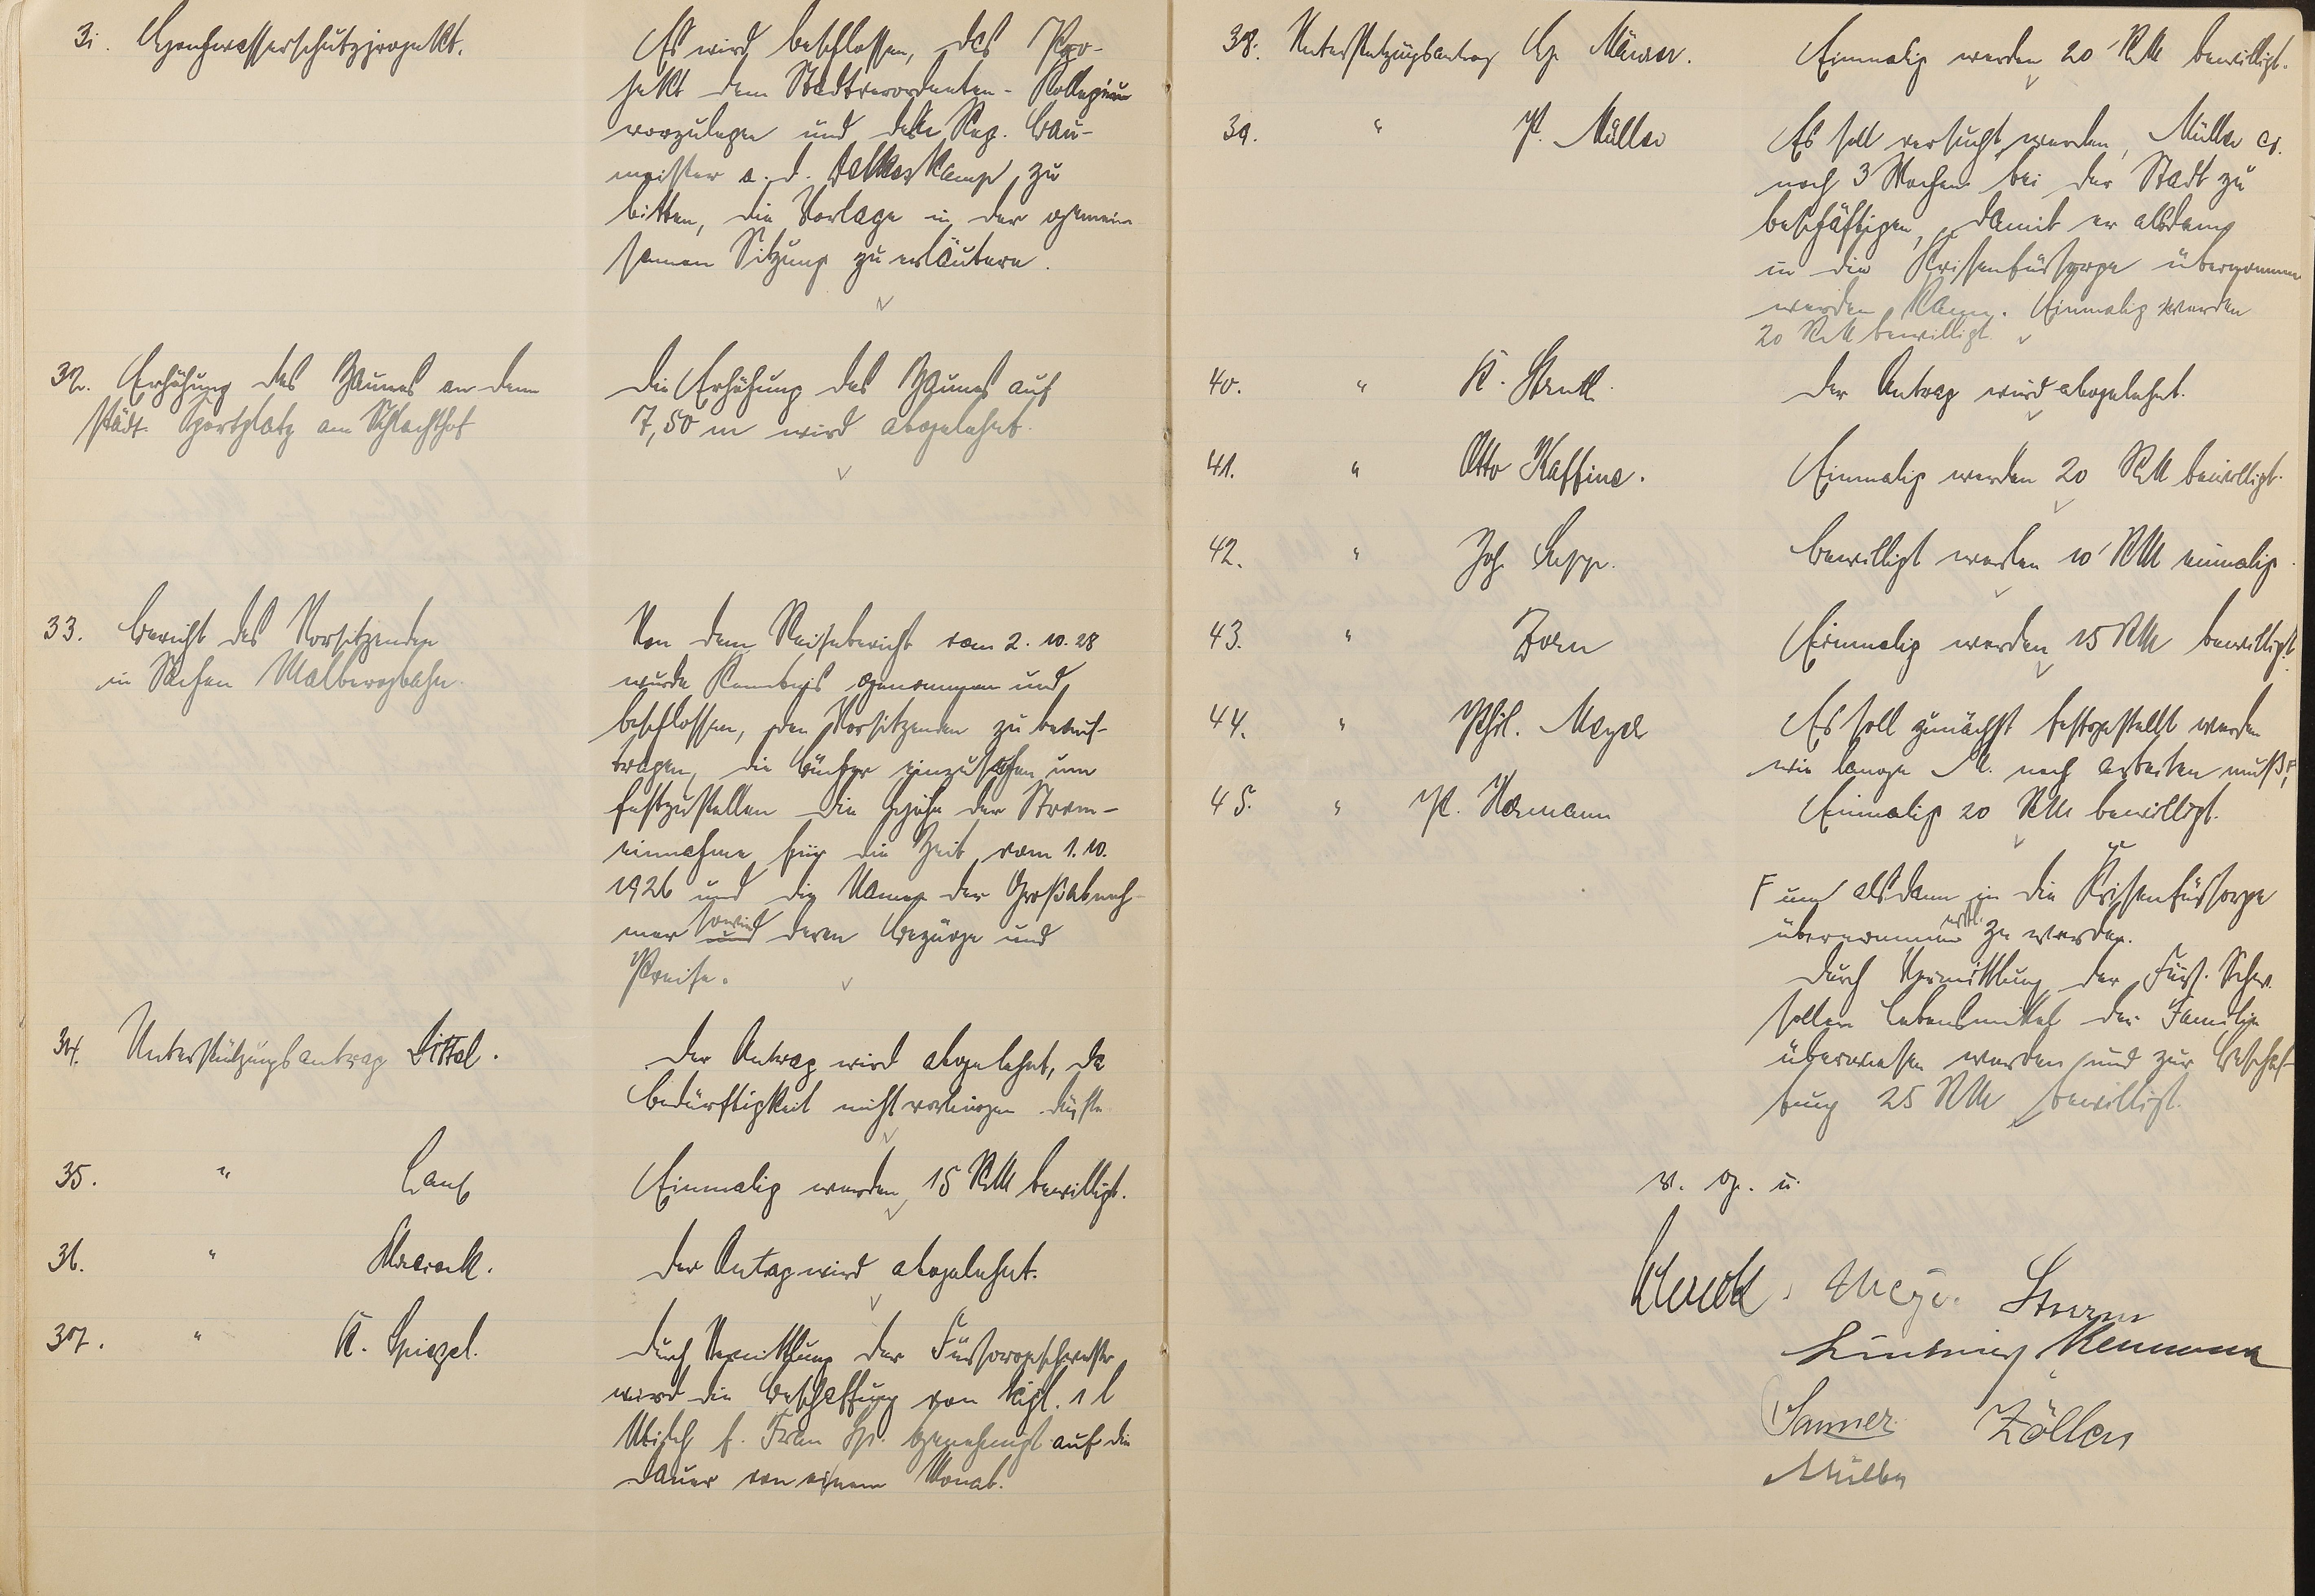 31. Hochwasserschutzprojekt.
Es wird beschlossen, das Pro-
jekt dem Stadtverordneten-Kollegium
vorzulegen und den Reg. Bau-
meister a. d. zu
bitten, die Vorlage in der gemein
samen Sitzung zu erläutern.
32. Erhöhung des Zaunes an dem
städt. Sportplatz am Schlachthof
Die Erhöhung des Zaunes auf
7,50 m wird abgelehnt.
33. Bericht des Vorsitzenden
in Sachen Malbergbahn.
Von dem Reisebericht vom 2. 10. 28
wurde Kenntnis genommen und
beschlossen, den Vorsitzenden zu beauf-
tragen, die Bücher einzusehen um
festzustellen die Höhe der Strom-
einnahme für die Zeit vom 1. 10.
1926 und die Namen der Großabneh-
mer sowie und deren Bezüge und
Preise.
34. Unterstützungsantrag Dittel.
Der Antrag wird abgelehnt, da
Bedürftigkeit nicht vorliegen dürfte
35. " Lauf
Einmalig werden 15 RM bewilligt.
36. "
Der Antrag wird abgelehnt.
37. " K. Spiegel.
Durch Vermittlung der Fürsorgeschwester
wird die Beschaffung von tägl. 1 l
Milch f. Frau Sp. genehmigt auf die
Dauer von einem Monat.
38. Unterstützungsantrag
Einmalig werden 20 RM bewilligt.
39. " P. Müller
Es soll versucht werden, Müller ca.
noch 3 Wochen bei der Stadt zu
beschäftigen, damit er alsdann
in die Krisenfürsorge übernommen
werden kann. Einmalig werden
20 RM bewilligt
40. " K.
Der Antrag wird abgelehnt.
41. " Otto Kaffine.
Einmalig werden 20 RM bewilligt.
42. " Joh. Lepp.
Bewilligt werden 10 RM einmalig.
43. " Zorn
Einmalig werden 15 RM bewilligt
44. " Phil. Meyer
Es soll zunächst festgestellt werden
wie lange M. noch arbeiten muß, F
45. " P. Hermann
Einmalig 20 RM bewilligt.
F um alsdann in die Krisenfürsorge
übernommen zu werden.
Durch Vermittlung der Fürs. Schw.
sollen Lebensmittel der Familie
überwiesen werden und zur Beschaf-
fung 25 RM bewilligt.
v. g. u.
Meyer. Sturm
Sanner Zöller
Müller